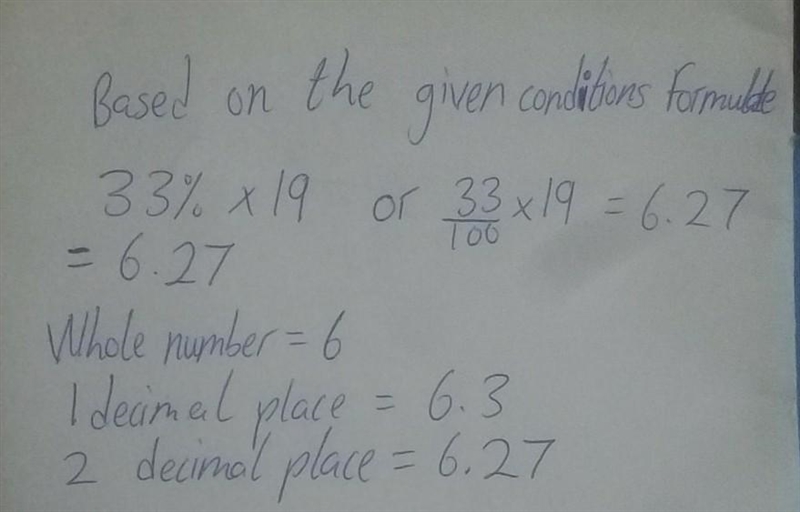 Based on the given conditions formulate
33% × 19 or 33/100 × 19 = 6.27
= 6.27
Whole number = 6
1 decimal place = 6.3
2 decimal place = 6.27